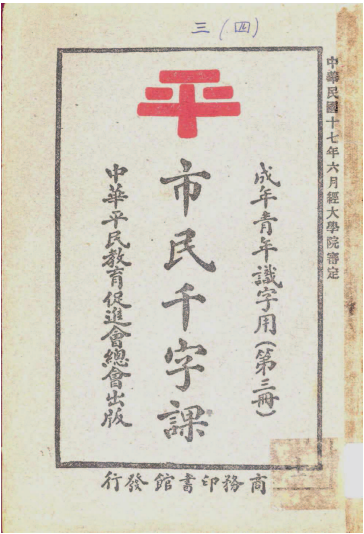 三(四)
中華民國十七年六月經大學院審定
平
成年青年識字用(第三冊)
市民千字課
中華平民教育促進會總會出版
商務印書館發行